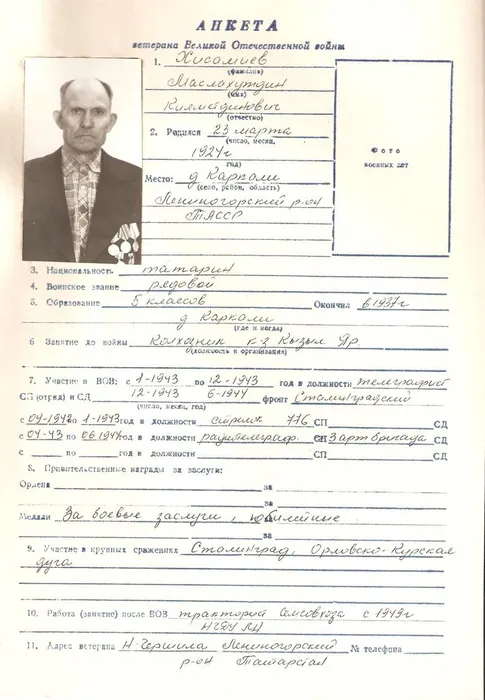 АНКЕТА
ветерана Великой Отечественной войны
1. Хисамиев
(фамилия)
Маслахутдин
(имя)
Киямединович
(отчество)
2. Родился 23 марта
(число, месяц,
1924 г
год)
Место: д Каркали
(село, район, область)
Лениногорский р-он
ТАССР
Фото
военных лет
3. Национальность татарин
4. Воинское звание рядовой
5. Образование 5 классов Окончил в 1937г
д Каркали
(где и когда)
6 Занятие до войны Колхозник к-з Кызыл Яр
(должность и организация)
7. Участие в ВОВ: с 1-1943 по 12-1943 год в должности телеграфист
СП (отряд) и СД 12-1943 6-1944 фронт Сталинградский
(число, месяц, год)
с 09-1942 по 1-1943 год и должности стрелок 776 СП СД
с 04-43 по 06 1944 год и должности радиотелеграф. СП 3 арт бригада СД
с по год и должности СП СД
8. Правительственные награды за заслуги:
Ордена за
за
Медали За боевые заслуги, юбилейные
за
9. Участие в крупных сражениях Сталинград, Орловско-Курская
дуга
10. Работа (занятие) после ВОВ тракторист Семсовхоза с 1949г
11. Адрес ветерана Н-Чершила Лениногорский № телефона
р-он Татарстан